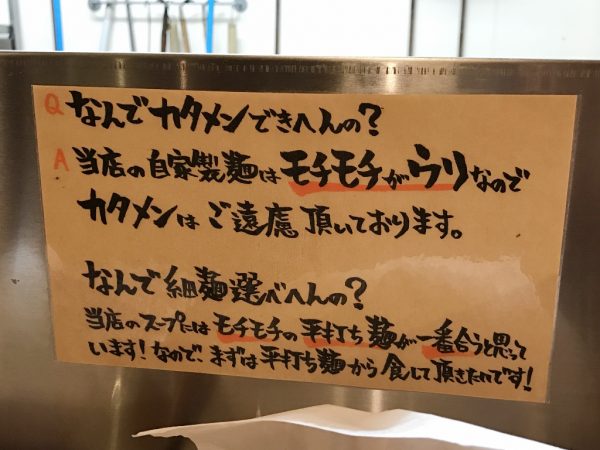 Q なんでカタメンできへんの?
A 当店の自家製麺はモチモチがウリなので
カタメンはご遠慮頂いております。
なんで細麺選べへんの?
当店のスープにはモチモチの平打ち麺が一番合うと思って
います!なので、まずは平打ち麺から食して頂きたいです!